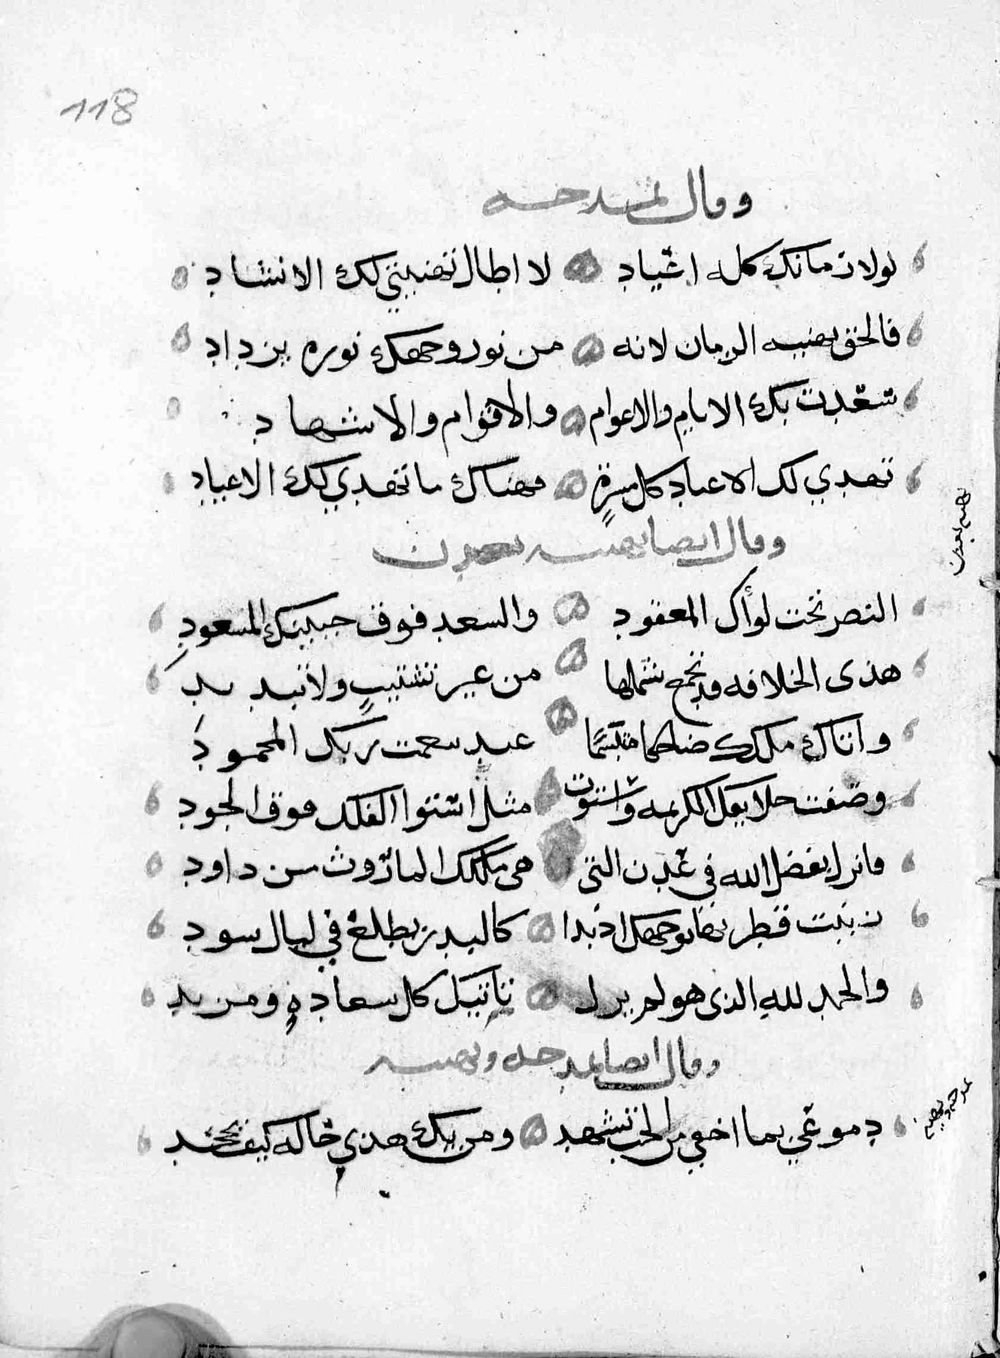 118
وقال يمدحه
لولا زمانك كله اعياد لا اطال تهنيتي لك الانشاد
فالحق يهنيه الزمان لانه من نور وجهك نوره يزداد
سعدت بك الايام والاعوام والاقوام والاشهاد
تهدي لك الاعياد كل مسرة فهناك ما تهدي لك الاعياد
وقال ايضا يهنيه بعدن
يهنيه بعدن
النصر تحت لوأك المعقود والسعد فوق جبينك المسعود
هذى الخلافه قد تجمع شملها من غير تشتيت ولا تبديد
واتاك ملكك ضاحكا متبسما عبد ربك المحمود
وصفت الكريمه واستوت مثل استوا الفلك فوق الجود
بفضل الله في عدن التى هى ملكك الماروث من داود
زينت قطريها بوجهك اذ بدا كالبدر يطلع في ليال سود
والحمد لله الذى هو لم يزل كل سعادة ومزيد
وقال ايضا يمدحه ويهنيه
يمدحه ويهنيه
دموعي بما اخفي من الحب تشهد ومن يك هذي حاله كيف يجحد